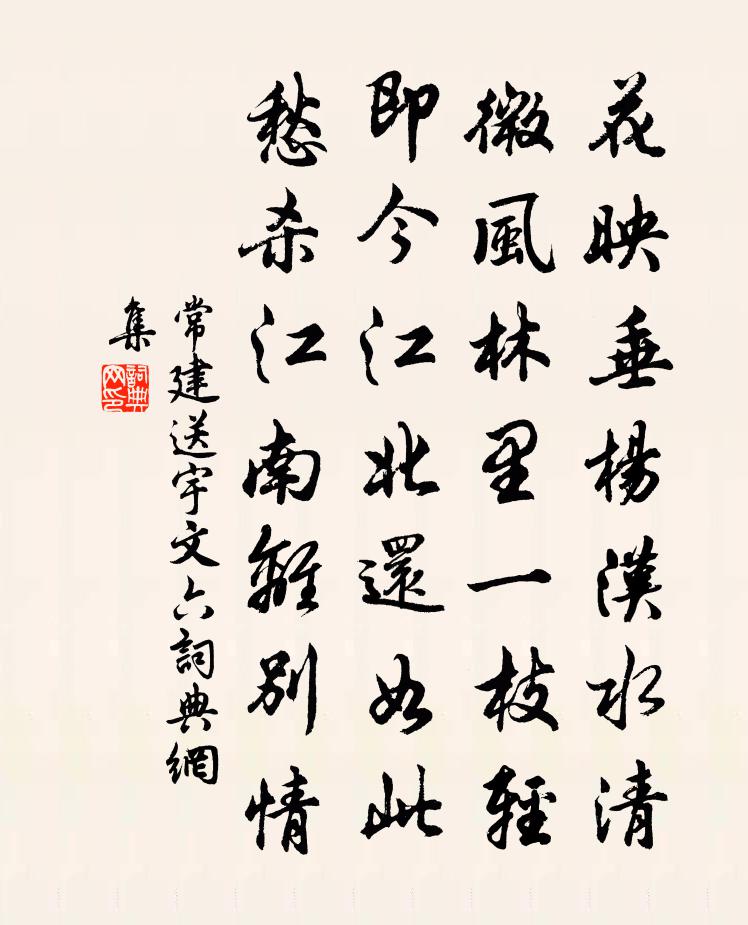 花映垂楊漢水清
微風林里一枝輕
即今江北還如此
愁杀江南離別情
常建送宇文六詞典網
集
詞典网印